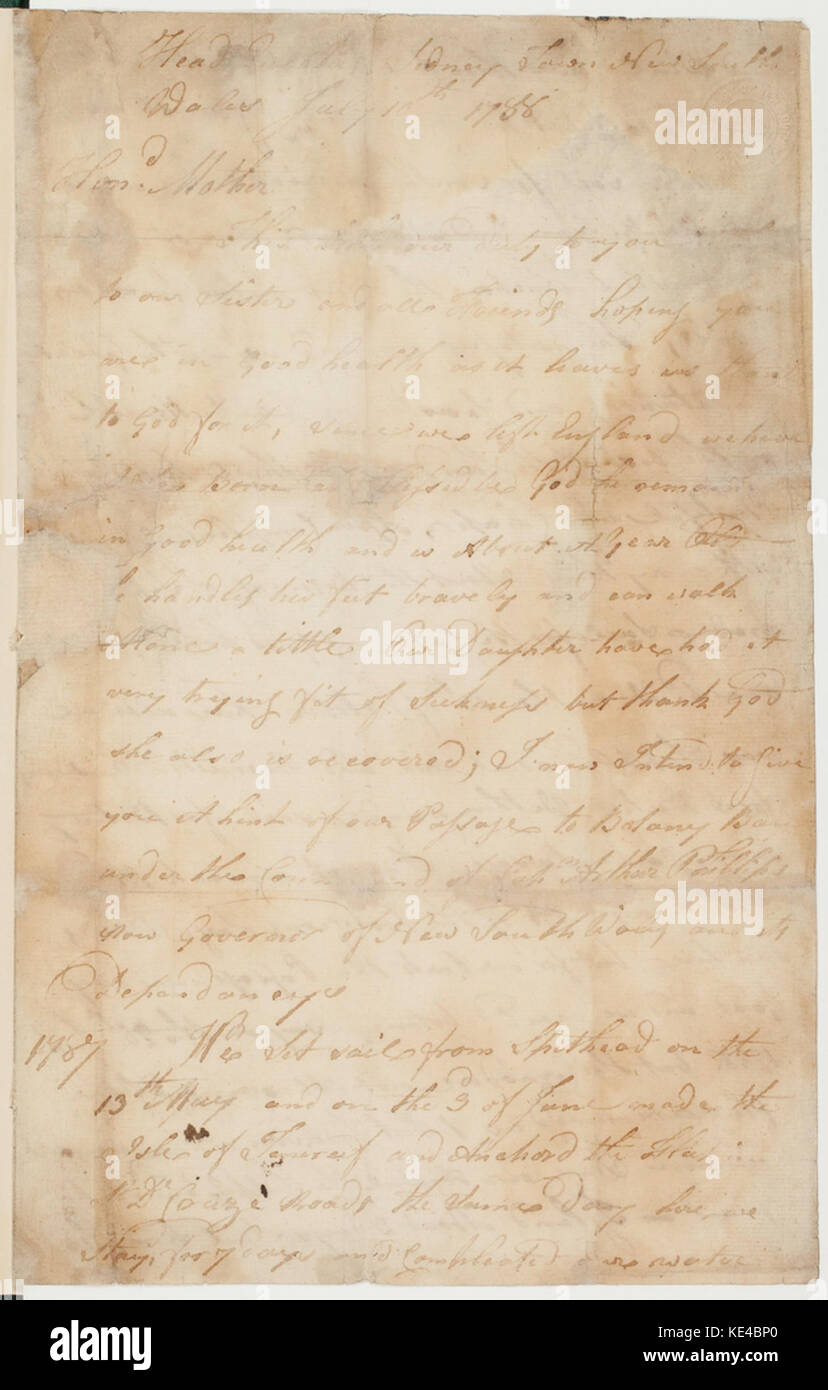 Head Sidney Town New South
Wales July 1788
Hon.d Mother
This our duty to you
to our Sister and all Friends hoping you
are in Good health as it leaves us Thank
to God for it, since we left England we have
Born God he remains
in Good health and is About A Year Old
he handles his feet bravely and can walk
Alone a little Our Daughter have had A
very trying fit of Sickness but thank God
she also is recovered; I now Intend to Give
you A hint of our Passage to Botany Bay
under the Command of Capn Arthur Phillips
now Governor of New South Wales and its
Dependancys
1787 We Set sail from Spithead on the
13th May and on the 3d of June made the
Isle of Teneref and Anchord the in
Roads the Same Day here we
Stay, for 7 days and Compleated our water
alamy
Image ID: KE4BP0
www.alamy.com